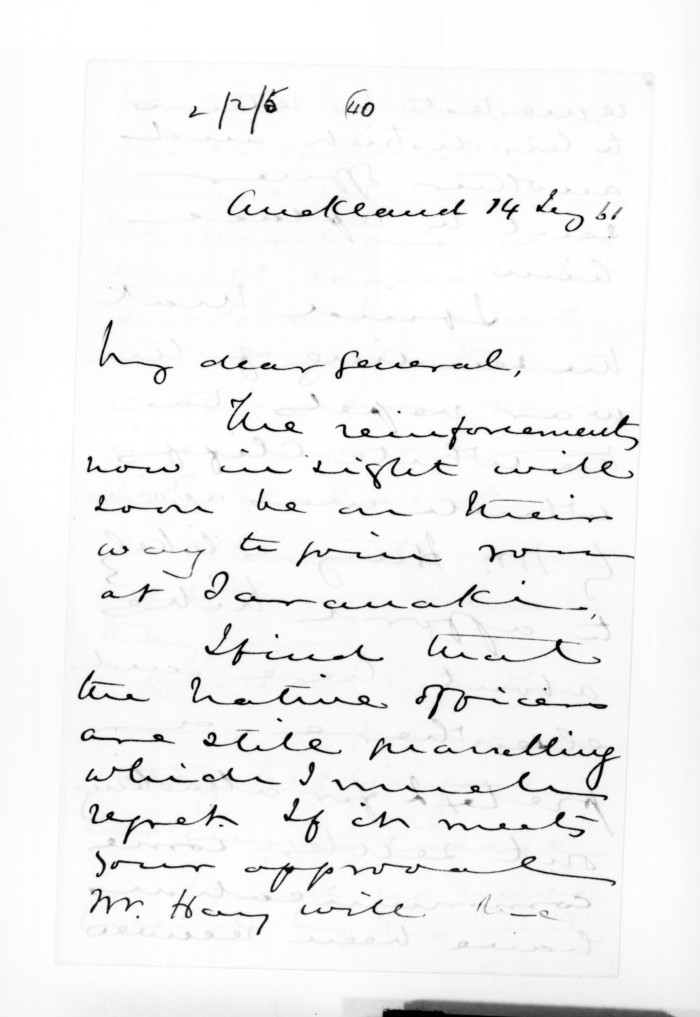 2/2/5 40
Auckland 14 Jany 61
My dear General,
The reinforcements
now in sight will
soon be on their
way to join you
at Taranaki.
I find that
the Native officers
are still quarrelling
which I much
regret. If it meets
your approval
Mr. Hay will